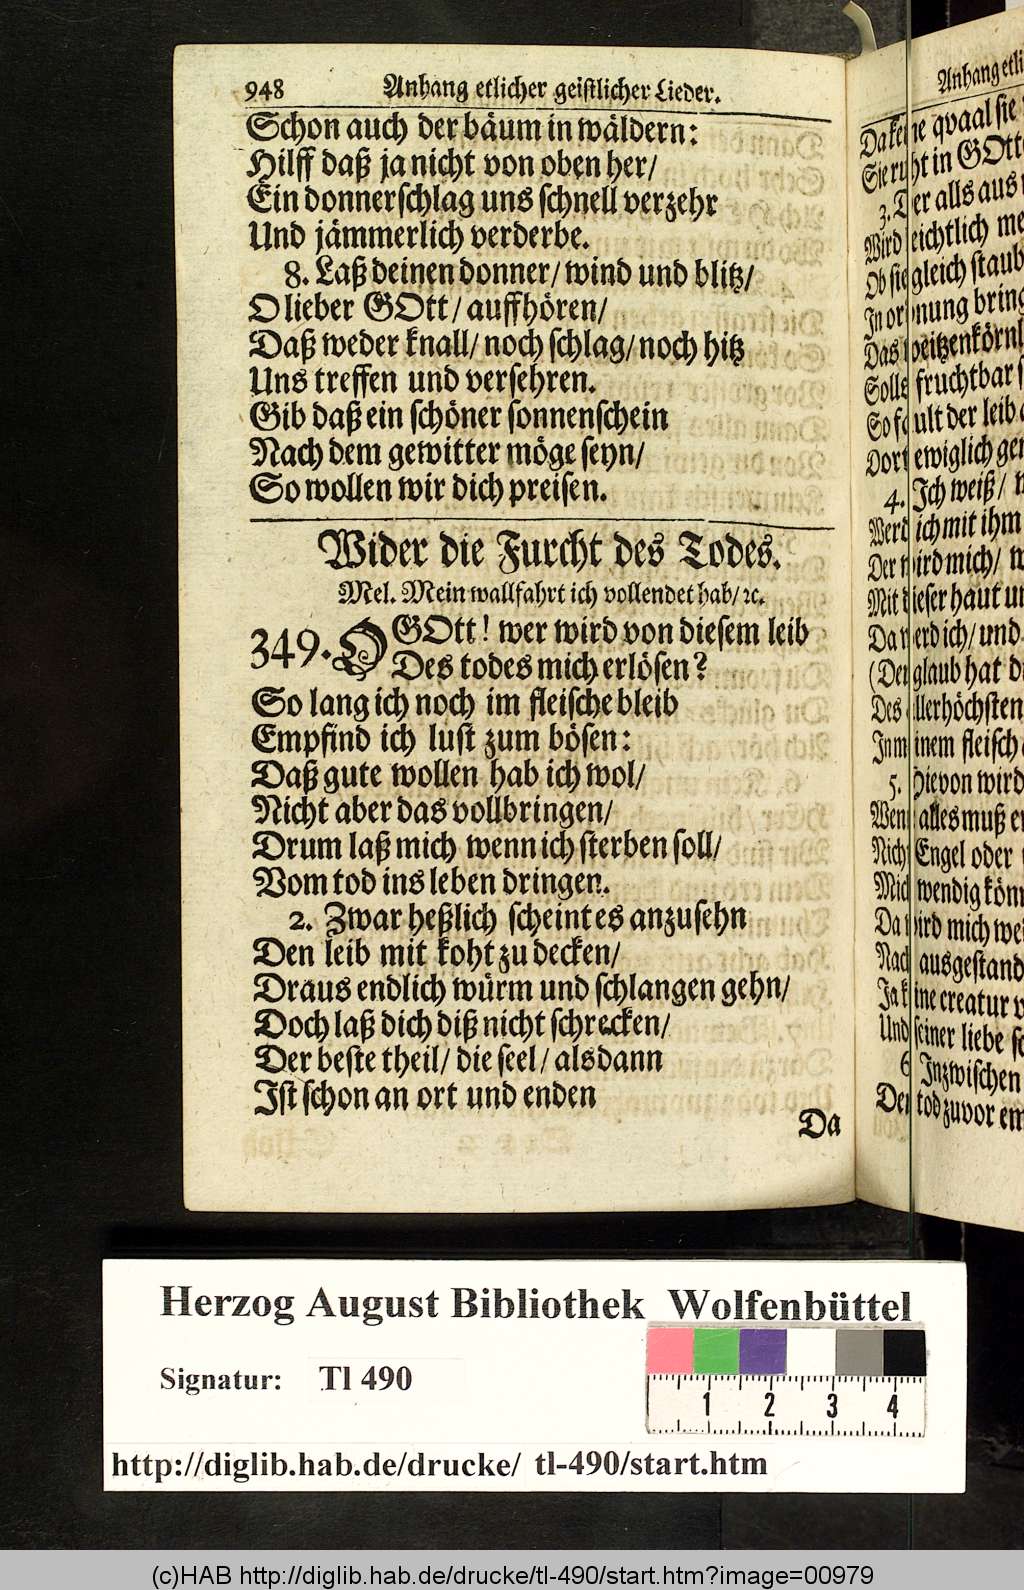 948 Anhang etlicher geistlicher Lieder.
Schon auch der bäum in wäldern:
Hilff daß ja nicht von oben her/
Ein donnerschlag uns schnell verzehr
Und jämmerlich verderbe.
8. Laß deinen donner/ wind und blitz/
O lieber GOtt/ auffhören/
Daß weder knall/ noch schlag/ noch hitz
Uns treffen und versehren.
Gib daß ein schöner sonnenschein
Nach dem gewitter möge seyn/
So wollen wir dich preisen.
Wider die Furcht des Todes.
Mel. Mein wallfahrt ich vollendet hab/ ꝛc.
349. O GOtt! wer wird von diesem leib
Des todes mich erlösen?
So lang ich noch im fleische bleib
Empfind ich lust zum bösen:
Daß gute wollen hab ich wol/
Nicht aber das vollbringen/
Drum laß mich wenn ich sterben soll/
Vom tod ins leben dringen.
2. Zwar heßlich scheint es anzusehn
Den leib mit koht zu decken/
Draus endlich würm und schlangen gehn/
Doch laß dich diß nicht schrecken/
Der beste theil/ die seel/ alsdann
Ist schon an ort und enden
Da
Anhang
qvaal sie
in GOtt
3. Der alls aus
Wird leichtlich
Ob sie gleich staub
In ordnung bring
Das weitzenkörnl
fruchtbar
der leib
Dort ewiglich
4. Ich weiß/
Werd ich mit ihm
Der wird mich/
Mit dieser haut
Da werd ich/ und
(Der glaub hat
Des allerhöchsten
In meinem fleisch
5. Hievon wird
Wenn alles muß
Nicht Engel oder
wendig
Da wird mich
Nach ausgestand
Ja keine creatur
Und seiner liebe
6. Inzwischen
Den tod zuvor
Herzog August Bibliothek Wolfenbüttel
Signatur: Tl 490
1 2 3 4
http://diglib.hab.de/drucke/ tl-490/start.htm
(c)HAB http://diglib.hab.de/drucke/tl-490/start.htm?image=00979